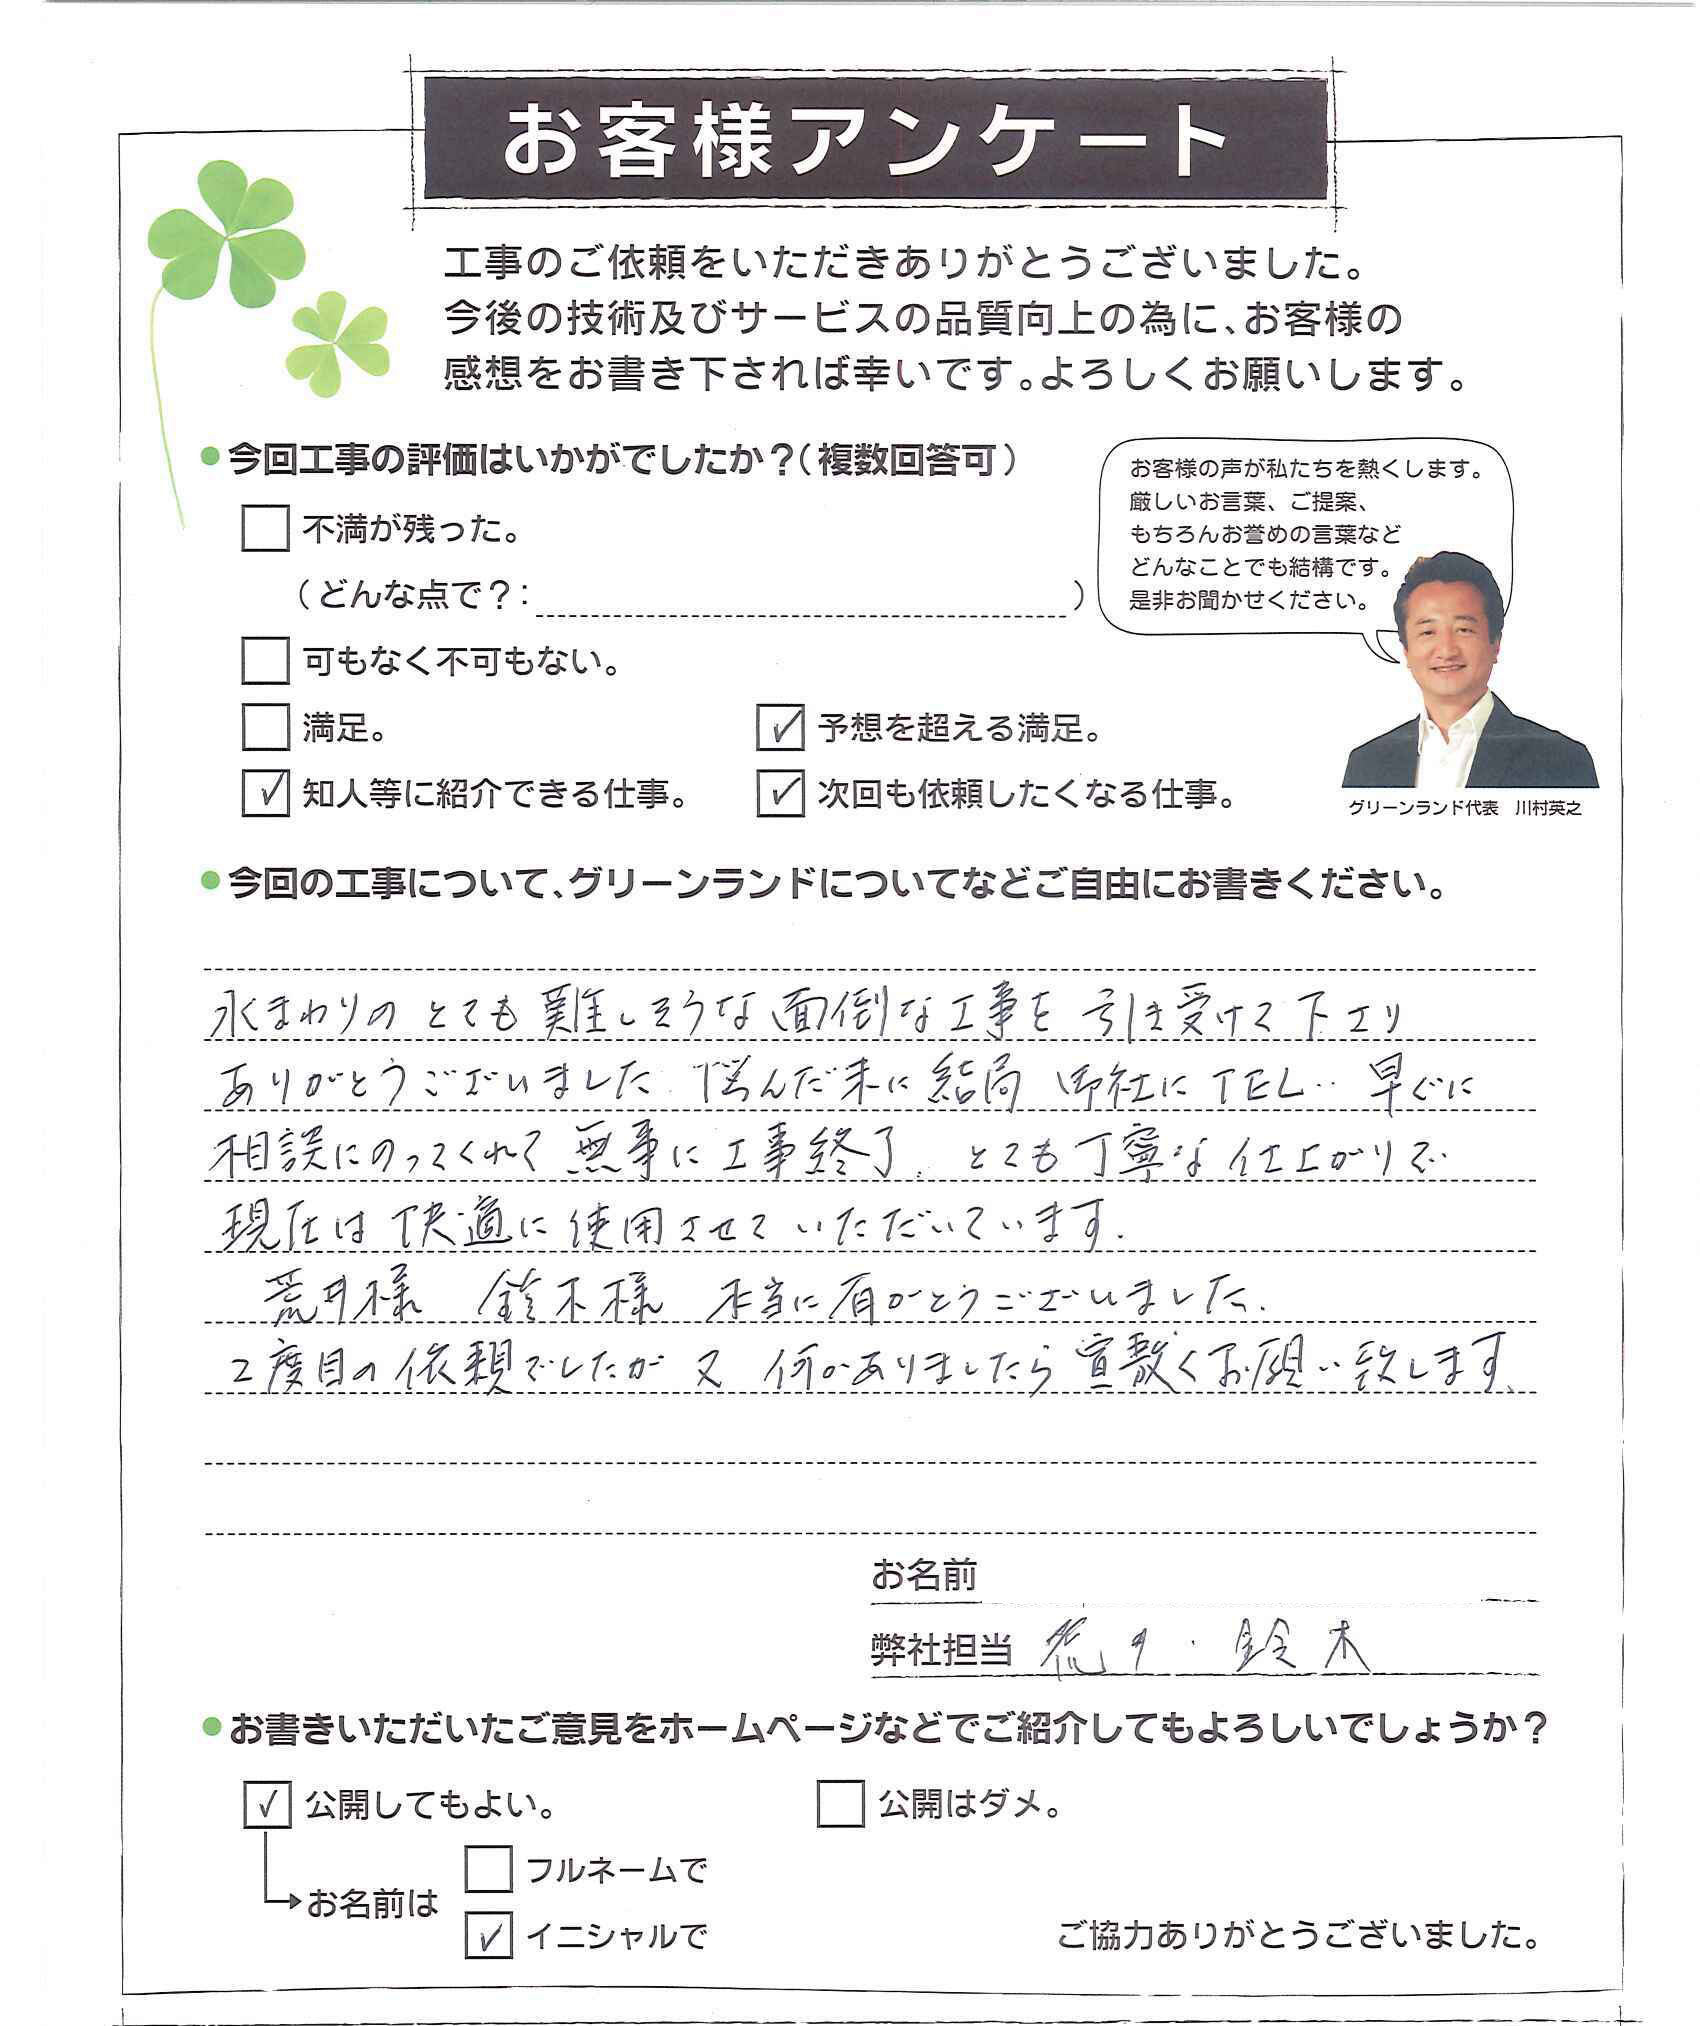 お客様アンケート
工事のご依頼をいただきありがとうございました。
今後の技術及びサービスの品質向上の為に、お客様の
感想をお書き下されば幸いです。よろしくお願いします。
今回工事の評価はいかがでしたか？（複数回答可）
不満が残った。
（どんな点で？：）
可もなく不可もない。
満足。
予想を超える満足。
知人等に紹介できる仕事。
次回も依頼したくなる仕事。
お客様の声が私たちを熱くします。
厳しいお言葉、ご提案、
もちろんお誉めの言葉など
どんなことでも結構です。
是非お聞かせください。
グリーンランド代表　川村英之
今回の工事について、グリーンランドについてなどご自由にお書きください。
水まわりの とても 難しそうな 面倒な工事を 引き受けて下さり
ありがとうございました 悩んだ末に 結局 御社にTEL‥ 早ぐに
相談にのってくれて 無事に工事終了. とても丁寧な仕上がりで
現在は快適に使用させていただいています.
荒井様 鈴木様 本当に有がとうございました.
2度目の依頼でしたが 又 何かありましたら宜敷くお願い致します.
お名前
弊社担当 荒井・鈴木
お書きいただいたご意見をホームページなどでご紹介してもよろしいでしょうか？
公開してもよい。
公開はダメ。
お名前は
フルネームで
イニシャルで
ご協力ありがとうございました。